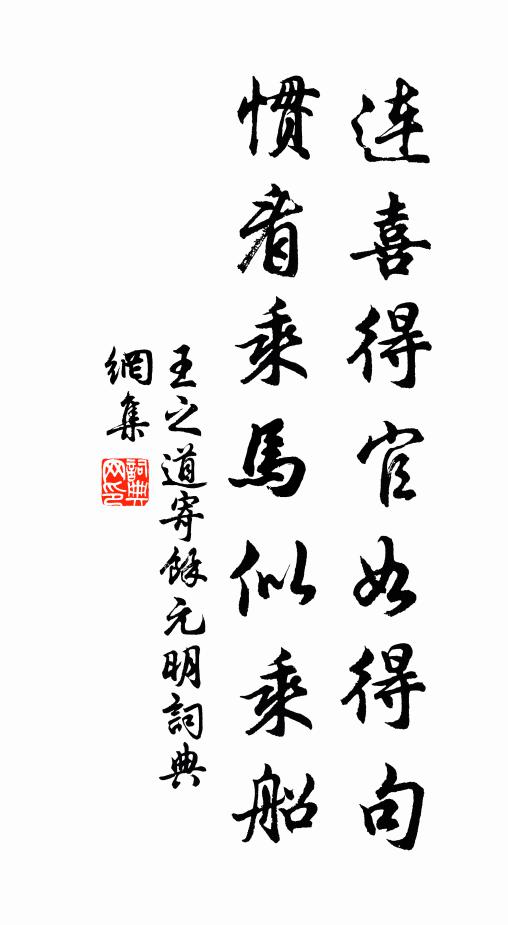 连喜得官如得句
惯看乘馬似乘船
王之道寄餘元明詞典
網集
詞典網印